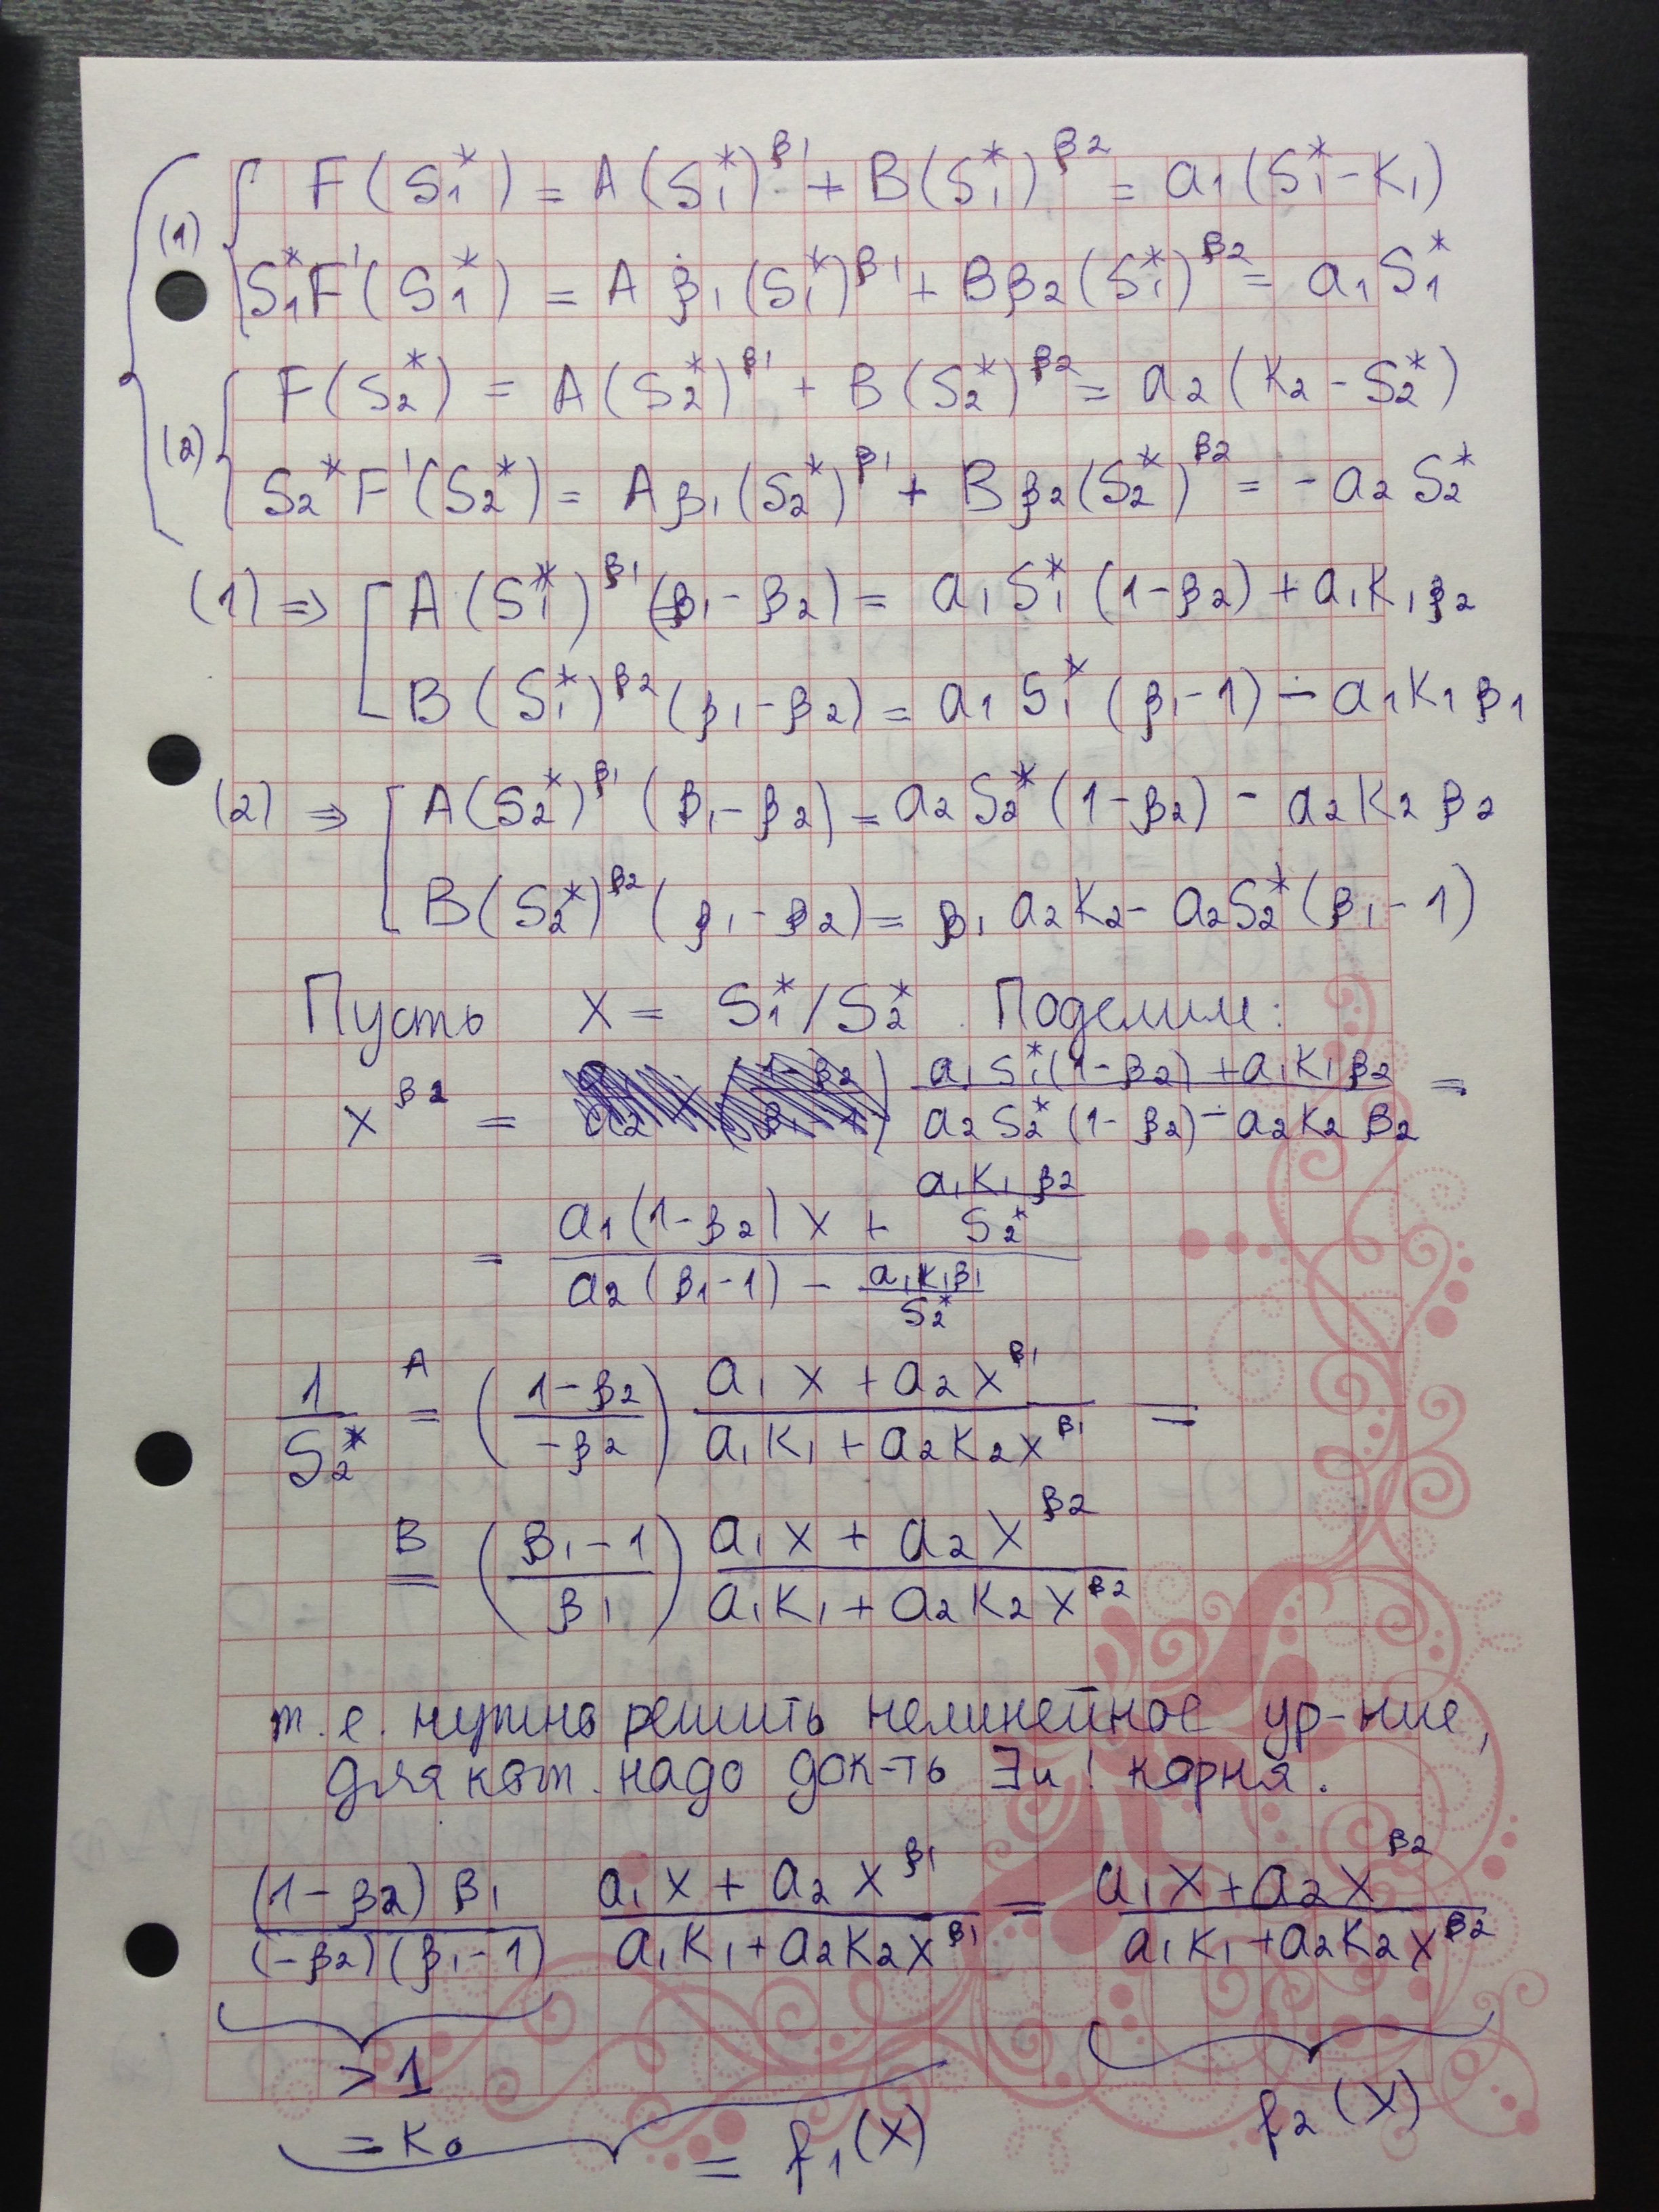 (1) { F(S₁*) = A(S₁*)^β₁ + B(S₁*)^β₂ = a₁(S₁* - K₁)
S₁*F'(S₁*) = Aβ₁(S₁*)^β₁ + Bβ₂(S₁*)^β₂ = a₁S₁*
(2) { F(S₂*) = A(S₂*)^β₁ + B(S₂*)^β₂ = a₂(K₂ - S₂*)
S₂*F'(S₂*) = Aβ₁(S₂*)^β₁ + Bβ₂(S₂*)^β₂ = -a₂S₂*
(1) ⇒ [ A(S₁*)^β₁(β₁-β₂) = a₁S₁*(1-β₂) + a₁K₁β₂
B(S₁*)^β₂(β₁-β₂) = a₁S₁*(β₁-1) - a₁K₁β₁
(2) ⇒ [ A(S₂*)^β₁(β₁-β₂) = a₂S₂*(1-β₂) - a₂K₂β₂
B(S₂*)^β₂(β₁-β₂) = β₁a₂K₂ - a₂S₂*(β₁-1)
Пусть x = S₁*/S₂*. Поделим:
x^β₂ = (a₁S₁*(1-β₂) + a₁K₁β₂)/(a₂S₂*(1-β₂) - a₂K₂β₂) =
= (a₁(1-β₂)x + a₁K₁β₂/S₂*)/(a₂(β₁-1) - a₁K₁β₁/S₂*)
1/S₂* =^A ((1-β₂)/(-β₂)) (a₁x + a₂x^β₁)/(a₁K₁ + a₂K₂x^β₁) =
=^B ((β₁-1)/β₁) (a₁x + a₂x^β₂)/(a₁K₁ + a₂K₂x^β₂)
т.е. нужно решить нелинейное ур-ние,
для кот. надо док-ть ∃ и ! корня.
((1-β₂)β₁)/((-β₂)(β₁-1)) (a₁x + a₂x^β₁)/(a₁K₁ + a₂K₂x^β₁) = (a₁x + a₂x^β₂)/(a₁K₁ + a₂K₂x^β₂)
>1
= K₀
= f₁(x)
f₂(x)